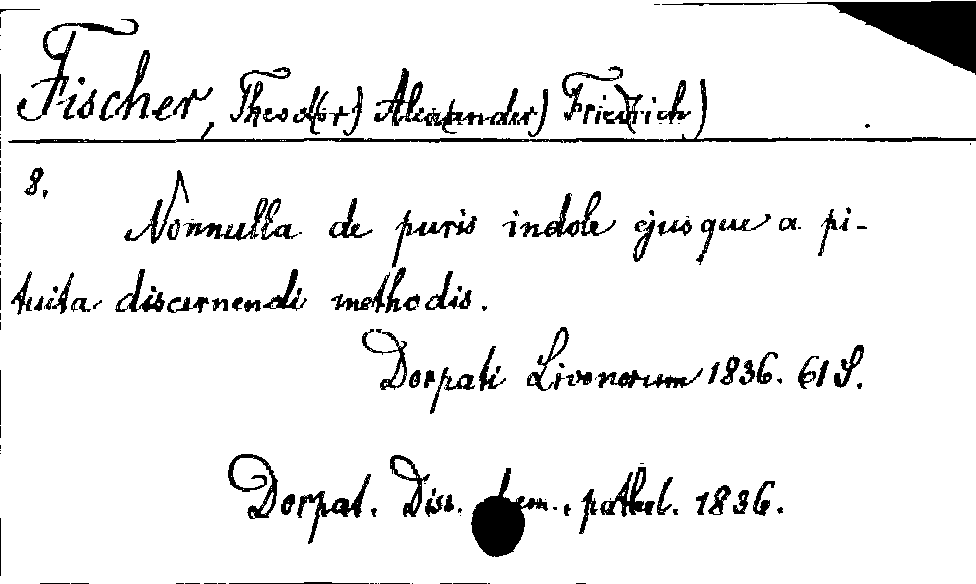 Fischer, Theod(or) Alexander) Fried(rich)
8.
Nonnulla de puris indole ejusque a pi-
tuita discernendi methodis.
Dorpati Livonorum 1836. 61 S.
Dorpat. Diss. pathol. 1836.